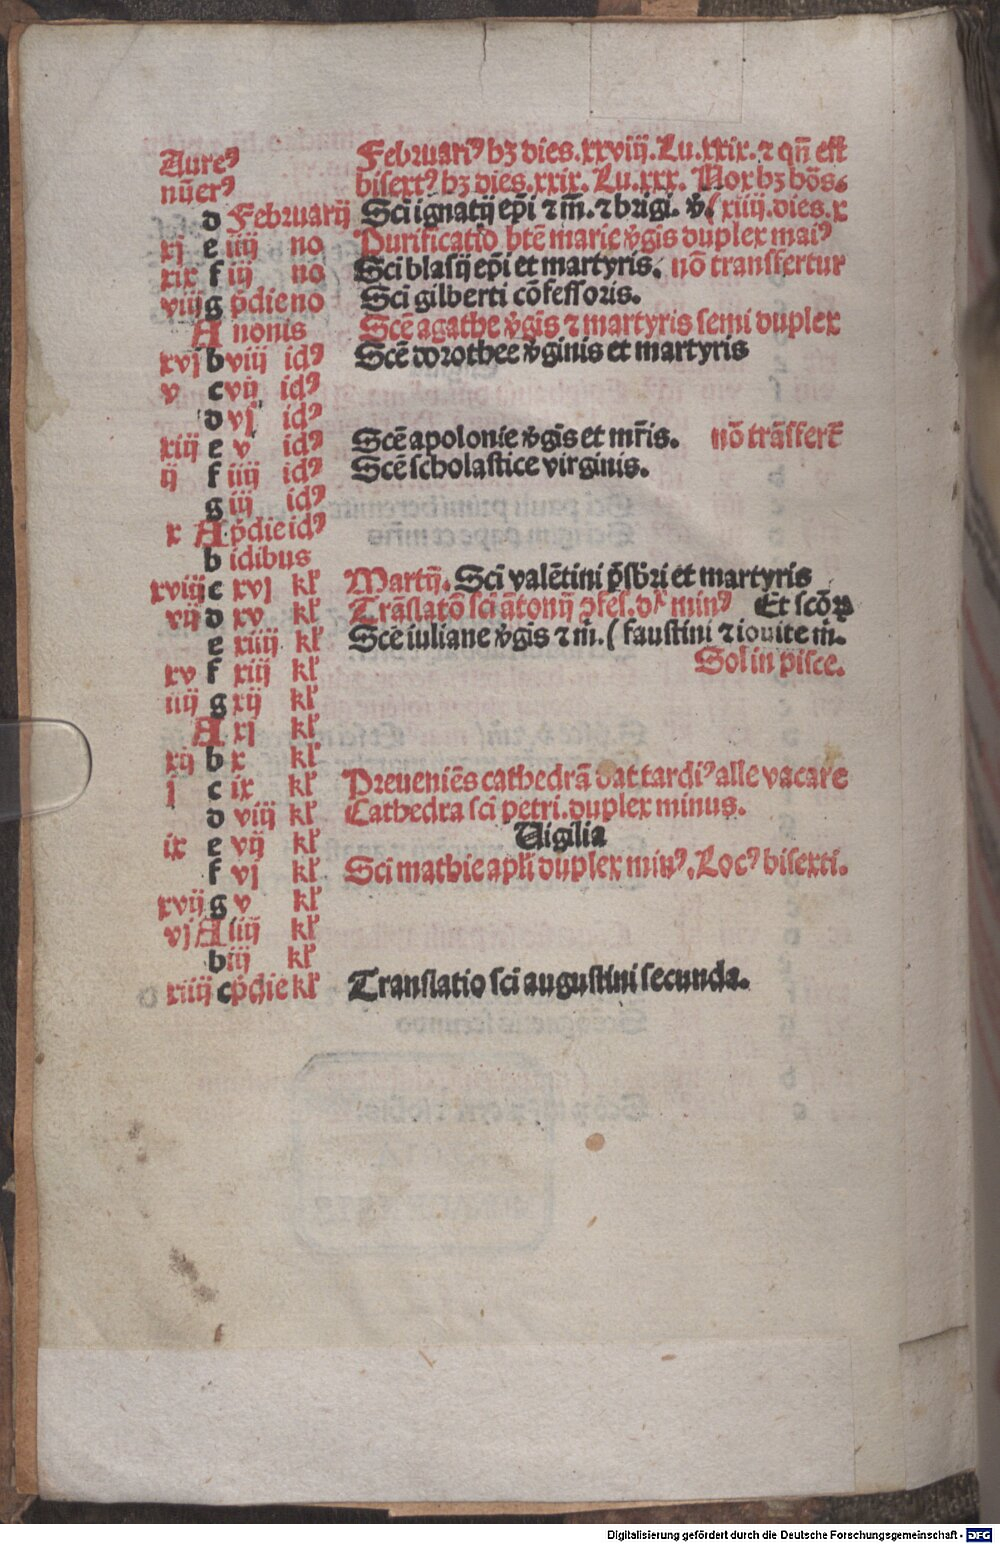 Aureꝰ Februariꝰ hꝫ dies.xxviij.Lu.xxix.⁊ qn̄ est
nūerꝰ bisextꝰ hꝫ dies.xxix. Lu.xxx. Nox hꝫ hōs.
d Februarij Sci ignatij ep̄i ⁊ m̄. ⁊ brigi. v̄. (xiiij.dies.x
xj e iiij no Purificatio btē marie v̄gis duplex maiꝰ
xix f iij no Sci blasij ep̄i et martyris. nō transfertur
viij g p̄die no Sci gilberti cōfessoris.
A nonis Scē agathe v̄gis ⁊ martyris semi duplex
xvj b viij idꝰ Scē dorothee v̄ginis et martyris
v c vij idꝰ
d vj idꝰ
xiij e v idꝰ Scē apolonie v̄gis et mr̄is. nō trāsfert̄
ij f iiij idꝰ Scē scholastice virginis.
g iij idꝰ
x A p̄die idꝰ
b idibus
xviij c xvj kl̓ Martij. Sci valētini p̄sbri et martyris
vij d xv kl̓ Trāslatō sci ātonij ꝯfes. d̓r minꝰ Et scōꝝ
e xiiij kl̓ Scē iuliane v̄gis ⁊ m̄. ( faustini ⁊ iouite m̄.
xv f xiij kl̓ Sol in pisce.
iiij g xij kl̓
A xj kl̓
xij b x kl̓
j c ix kl̓ Preueniēs cathedrā dat tardiꝰ alle vacare
d viij kl̓ Cathedra sci petri.duplex minus.
ix e vij kl̓ Vigilia
f vj kl̓ Sci mathie apl̄i duplex minꝰ.Locꝰ bisexti.
xvij g v kl̓
vj A iiij kl̓
b iij kl̓
xiiij c p̄die kl̓ Translatio sci augustini secunda.
Digitalisierung gefördert durch die Deutsche Forschungsgemeinschaft - DFG